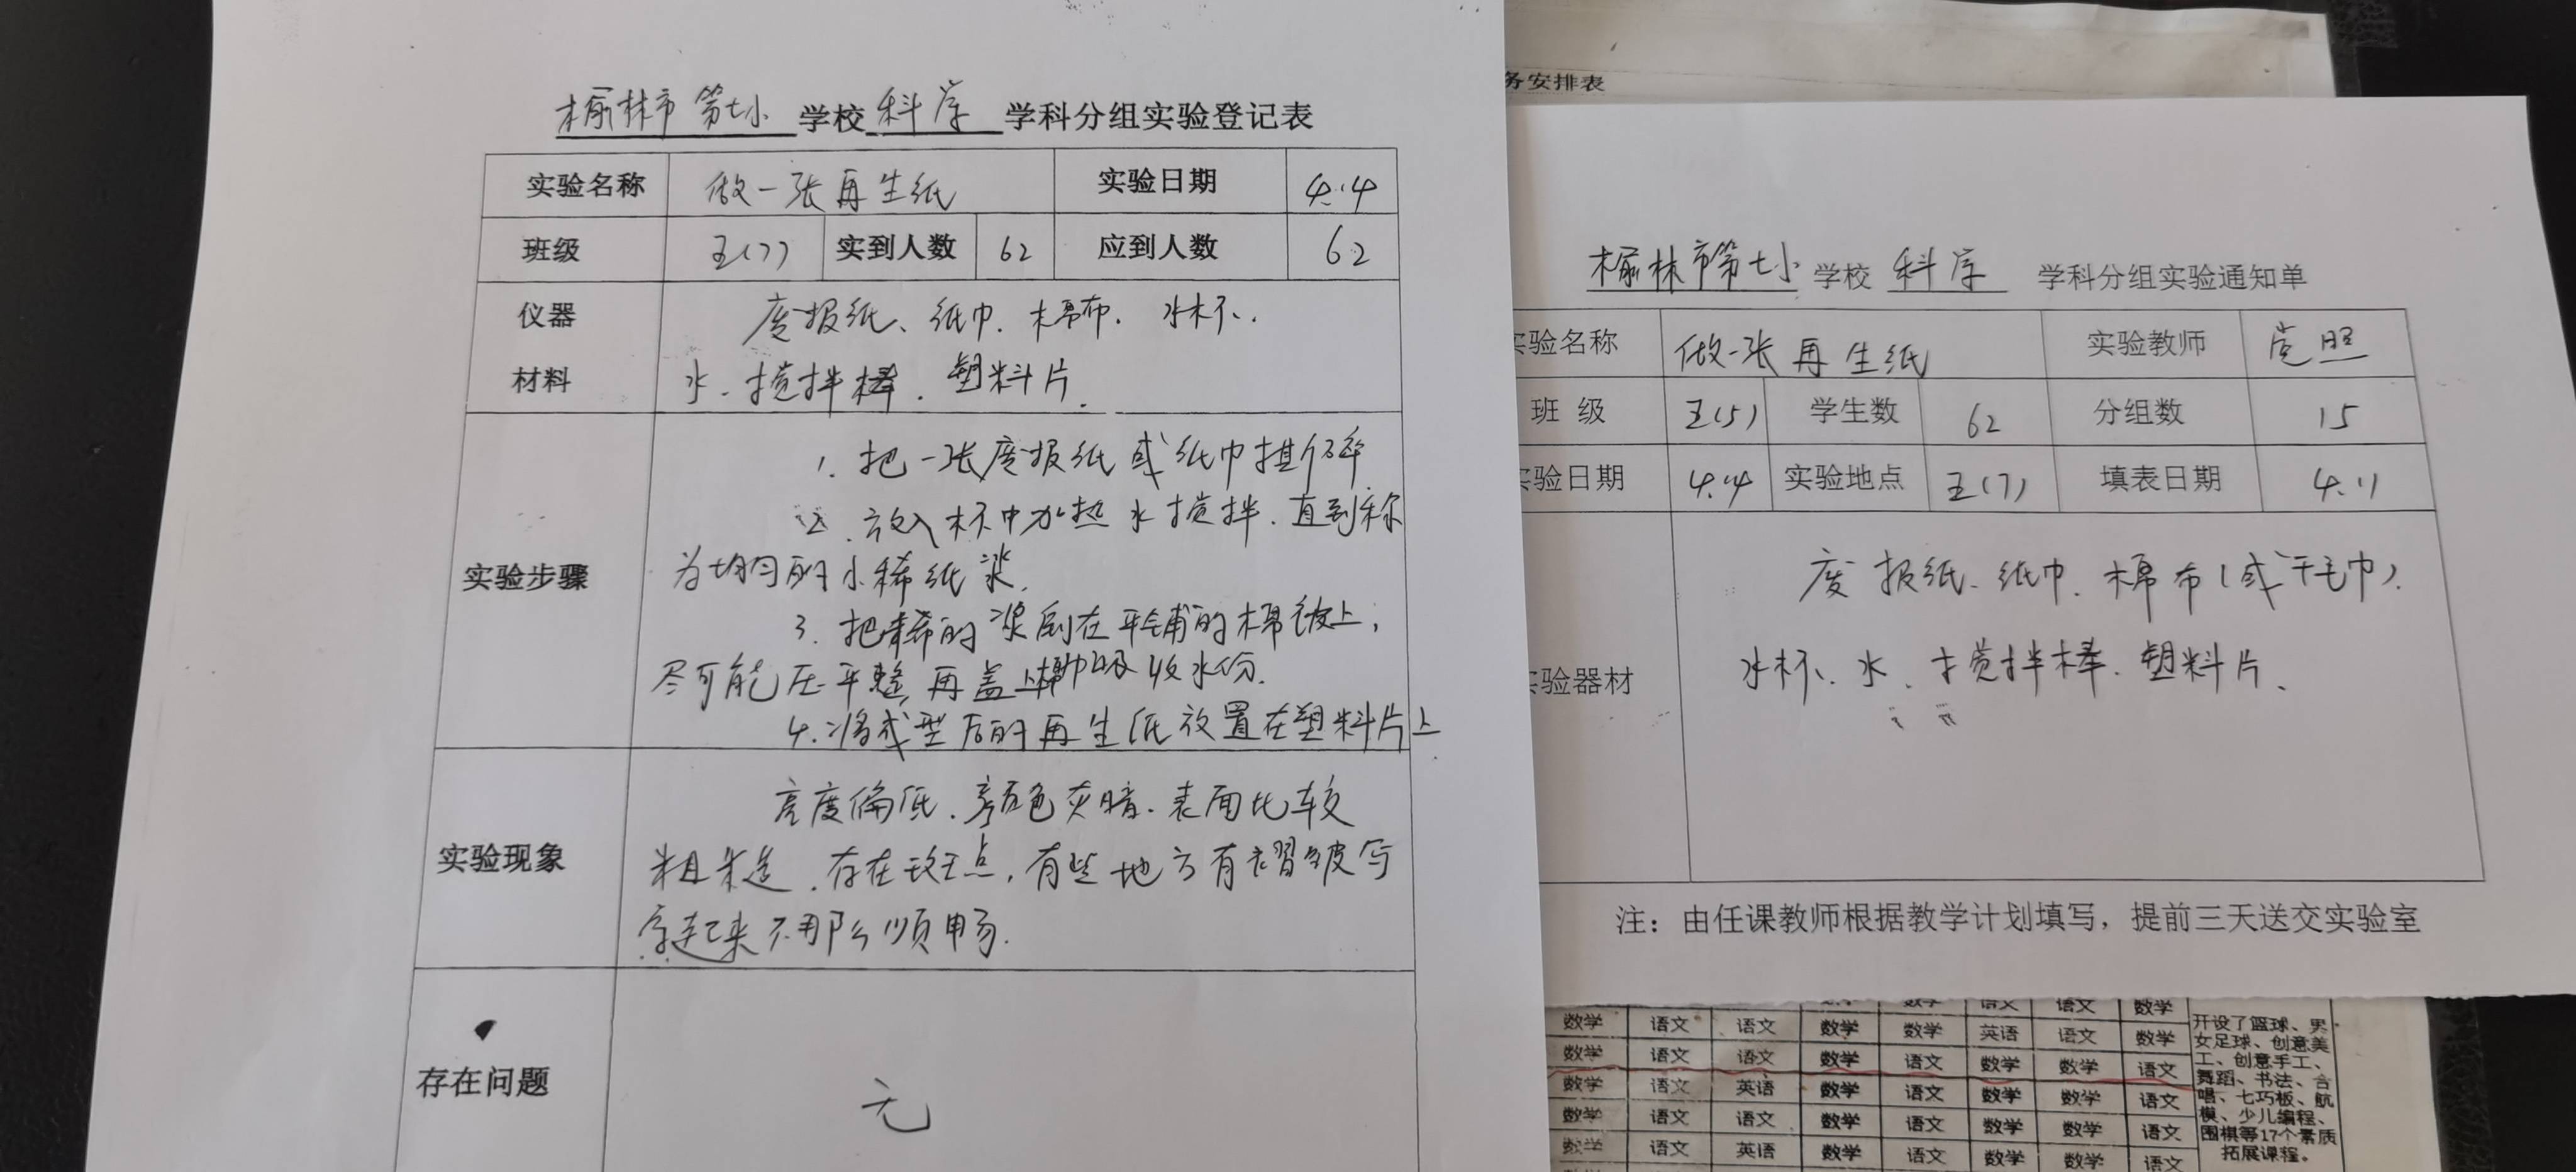 榆林市第七小学校科学学科分组实验登记表
实验名称 做一张再生纸 实验日期 4.14
班级 五(7) 实到人数 62 应到人数 62
仪器 废报纸、纸巾、棉布、水杯、
材料 水、搅拌棒、塑料片.
1. 把一张废报纸或纸巾撕碎
实验步骤
2. 放入杯中加热水搅拌.直到称
为均匀的小稀纸浆.
3. 把稀的浆倒在平铺的棉被上,
尽可能压平整,再盖上棉巾吸收水份.
4. 将成型后的再生纸放置在塑料片上
实验现象
亮度偏低.颜色灰暗.表面比较
粗糙.存在斑点,有些地方有褶皱写
字起来不那么顺畅.
存在问题
无
务安排表
榆林市第七小学校科学学科分组实验通知单
实验名称 做一张再生纸 实验教师 党照
班 级 五(5) 学生数 62 分组数 15
实验日期 4.14 实验地点 五(7) 填表日期 4.11
废报纸、纸巾、棉布(或干毛巾)、
实验器材 水杯、水、搅拌棒、塑料片、
注：由任课教师根据教学计划填写，提前三天送交实验室
数学 语文 语文 数学
数学 语文 语文 数学 数学 英语 语文 数学
数学 语文 语文 数学 语文 数学 数学 语文
数学 语文 英语 数学 语文 数学 数学 语文
数学 语文 语文 数学 语文 数学 数学 语文
数学 语文 英语 数学 语文 数学 数学 语文
开设了篮球、男
女足球、创意美
工、创意手工、
舞蹈、书法、合
唱、七巧板、航
模、少儿编程、
围棋等17个素质
拓展课程。